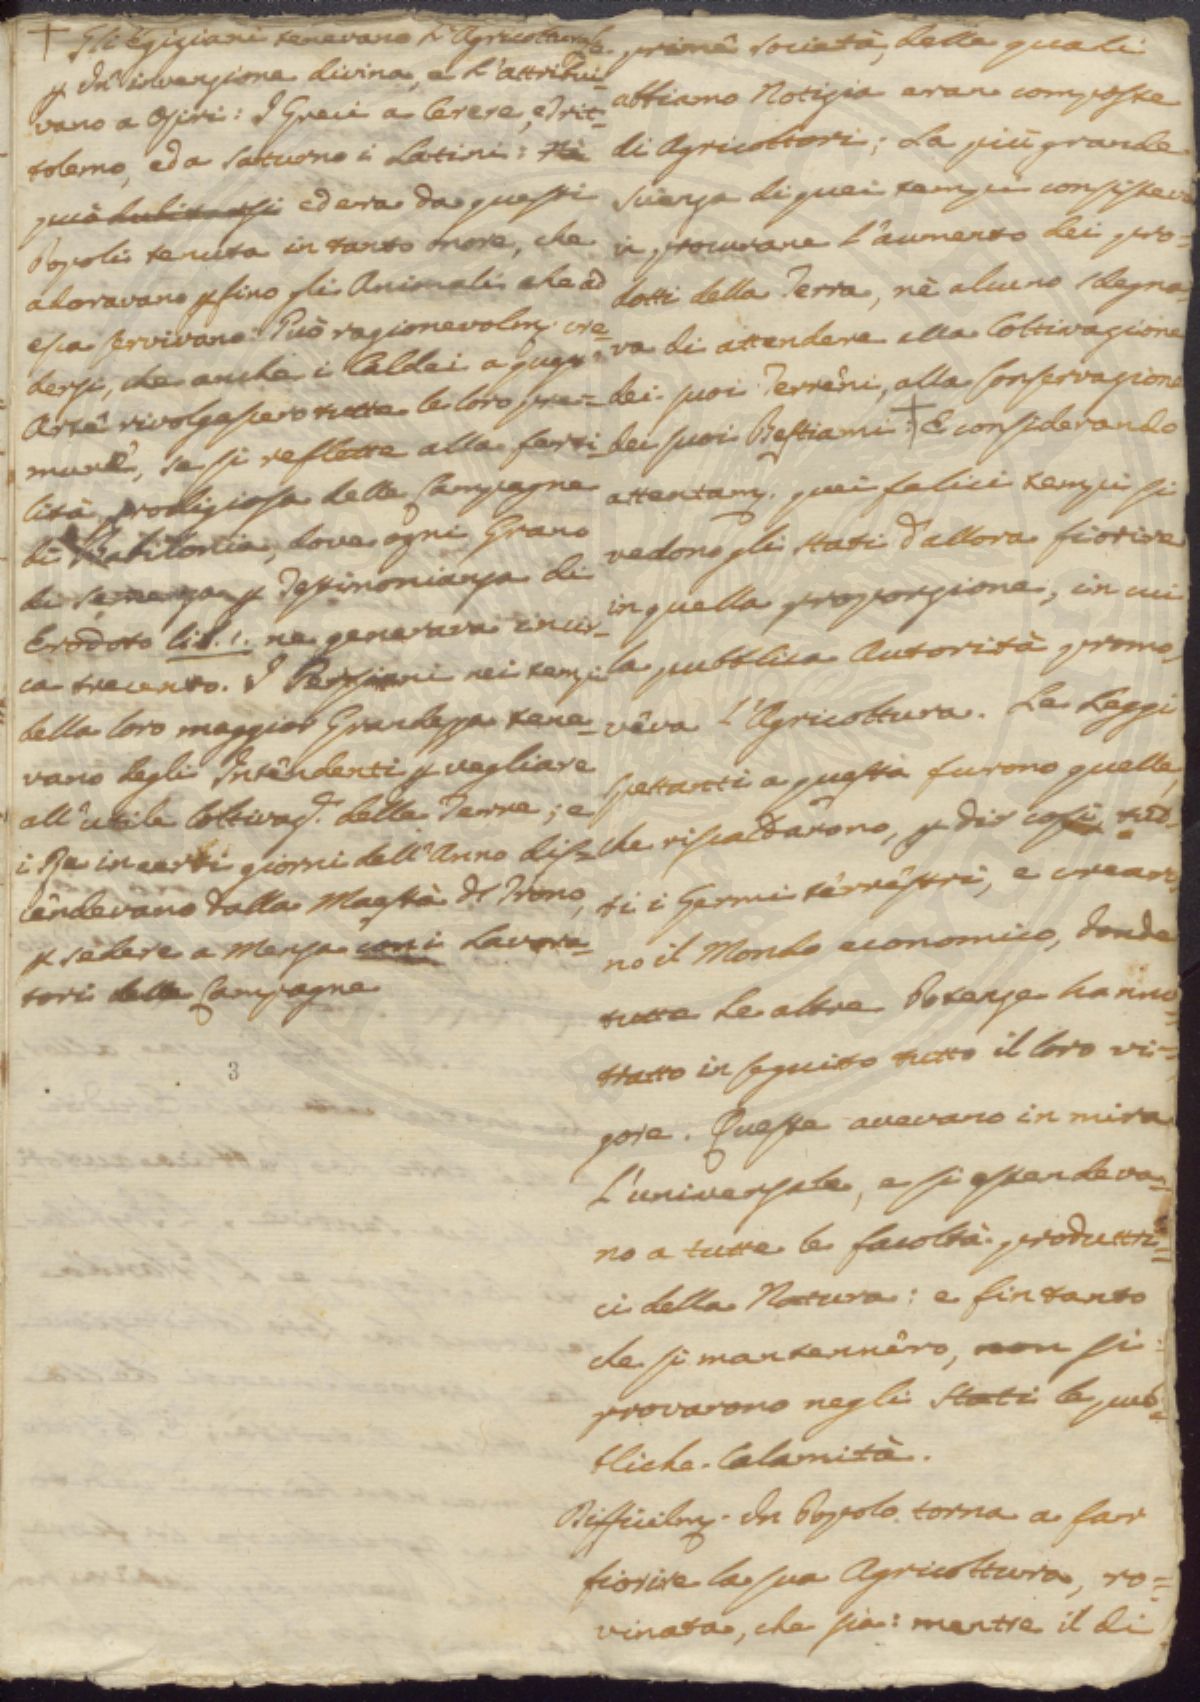 † Gli Egiziani tenevano l'Agricoltura
p un' invenzione divina, e l'attribui-
vano a Osiri: I Greci a Cerere, e Trit-
tolemo, ed a Saturno i Latini:
può dubitarsi ed era da questi
Popoli tenuta in tanto onore, che
adoravano p fino gli Animali che ad
essa servivano. Può ragionevolm. cre-
dersi, che anche i Caldei a quest'
Arte rivolgessero tutte le loro pre-
mure, se si reflette alla ferti-
lità prodigiosa delle Campagne
di Babilonia, dove ogni Grano
di semenza p Testimonianza di
Erodoto lib. 1. ne generava incir-
ca trecento. I Persiani nei tempi
della loro maggior Grandezza tene-
vano degli Intendenti p vegliare
all'utile Coltivaz. delle Terre; e
i Re in certi giorni dell'Anno dis-
cendevano dalla Maestà del Trono,
p sedere a Mensa con i Lavora-
tori delle Campagne
3
prime società, delle quali
abbiamo Notizia eran composte
di Agricoltori; La più grande
scienza di quei tempi consisteva
in procurare l'aumento dei pro-
dotti della Terra, nè alcuno sdegna-
va di attendere alla Coltivazione
dei suoi Terreni, alla Conservazione
dei suoi Bestiami: † E considerando
attentam. quei felici tempi si
vedono gli stati d'allora fiorire
in quella proporzione, in cui
la pubblica Autorità promo-
veva l'Agricoltura. Le Leggi
spettanti a questa furono quelle,
che riscaldarono, p dir così, tut-
ti i Germi terrestri, e crearo-
no il Mondo economico, donde
tutte le altre Potenze hanno
tratto in seguito tutto il loro vi-
gore. Queste avevano in mira
l'universale, e si estendeva-
no a tutte le facoltà produttri-
ci della Natura: e fintanto
che si mantennero, non si
provarono negli Stati le pub-
bliche Calamità.
Difficilm. un Popolo torna a far
fiorire la sua Agricoltura, ro-
vinata, che sia: mentre il di